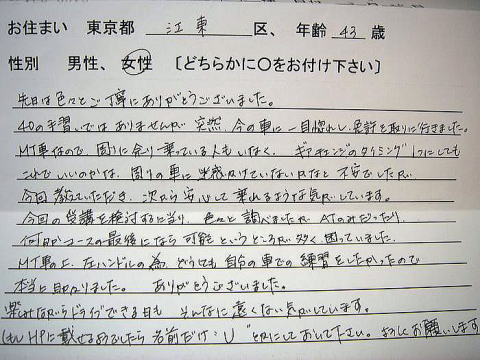 お住まい 東京都 江東 区、 年齢 43 歳
性別 男性、 女性 〔どちらかに〇をお付け下さい〕
先日は色々とご丁寧にありがとうございました。
40の手習いではありませんが 突然、今の車に一目惚れし、免許を取りに行きました。
MT車なので、周りに余り乗っている人もいなく、ギアチェンジのタイミング1つにしても
これでいいのかな、周りの車に迷惑かけていないかなと 不安でしたが
今回 教えていただき、次から安心して乗れるような気がしています。
今回の受講を検討するに当り、色々と調べましたが、ATのみだったり、
何日かコースの最後になら可能 というところが多く 困っていました。
MT車の上、左ハンドルの為、どうしても自分の車での練習をしたかったので
本当に助かりました。 ありがとうございました。
楽しみながらドライブできる日も そんなに遠くない気がしています。
(もし HPに載せるようでしたら 名前だけ:U とかにしておいて下さい。よろしくお願いします